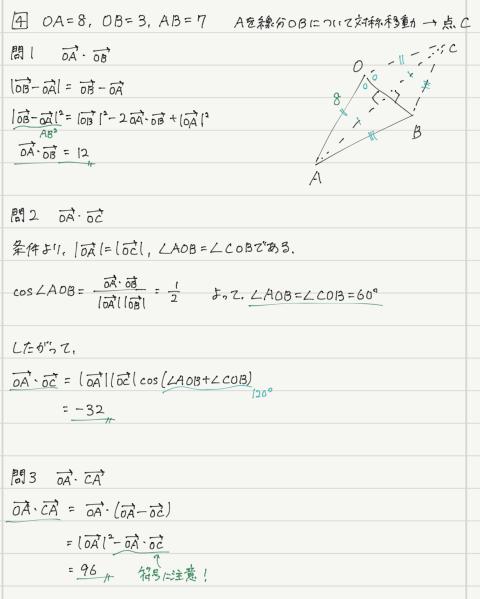 4 OA=8, OB=3, AB=7 Aを線分OBについて対称移動→点C
問1 OA・OB
|OB-OA| = OB-OA
|OB-OA|² = |OB|²-2OA・OB+|OA|²
AB²
OA・OB = 12
O
C
8
B
A
問2 OA・OC
条件より, |OA|=|OC|, ∠AOB=∠COBである.
cos∠AOB = OA・OB / |OA||OB| = 1/2 よって, ∠AOB=∠COB=60°
したがって,
OA・OC = |OA||OC|cos(∠AOB+∠COB)
120°
= -32
問3 OA・CA
OA・CA = OA・(OA-OC)
= |OA|²-OA・OC
= 96 符号に注意!